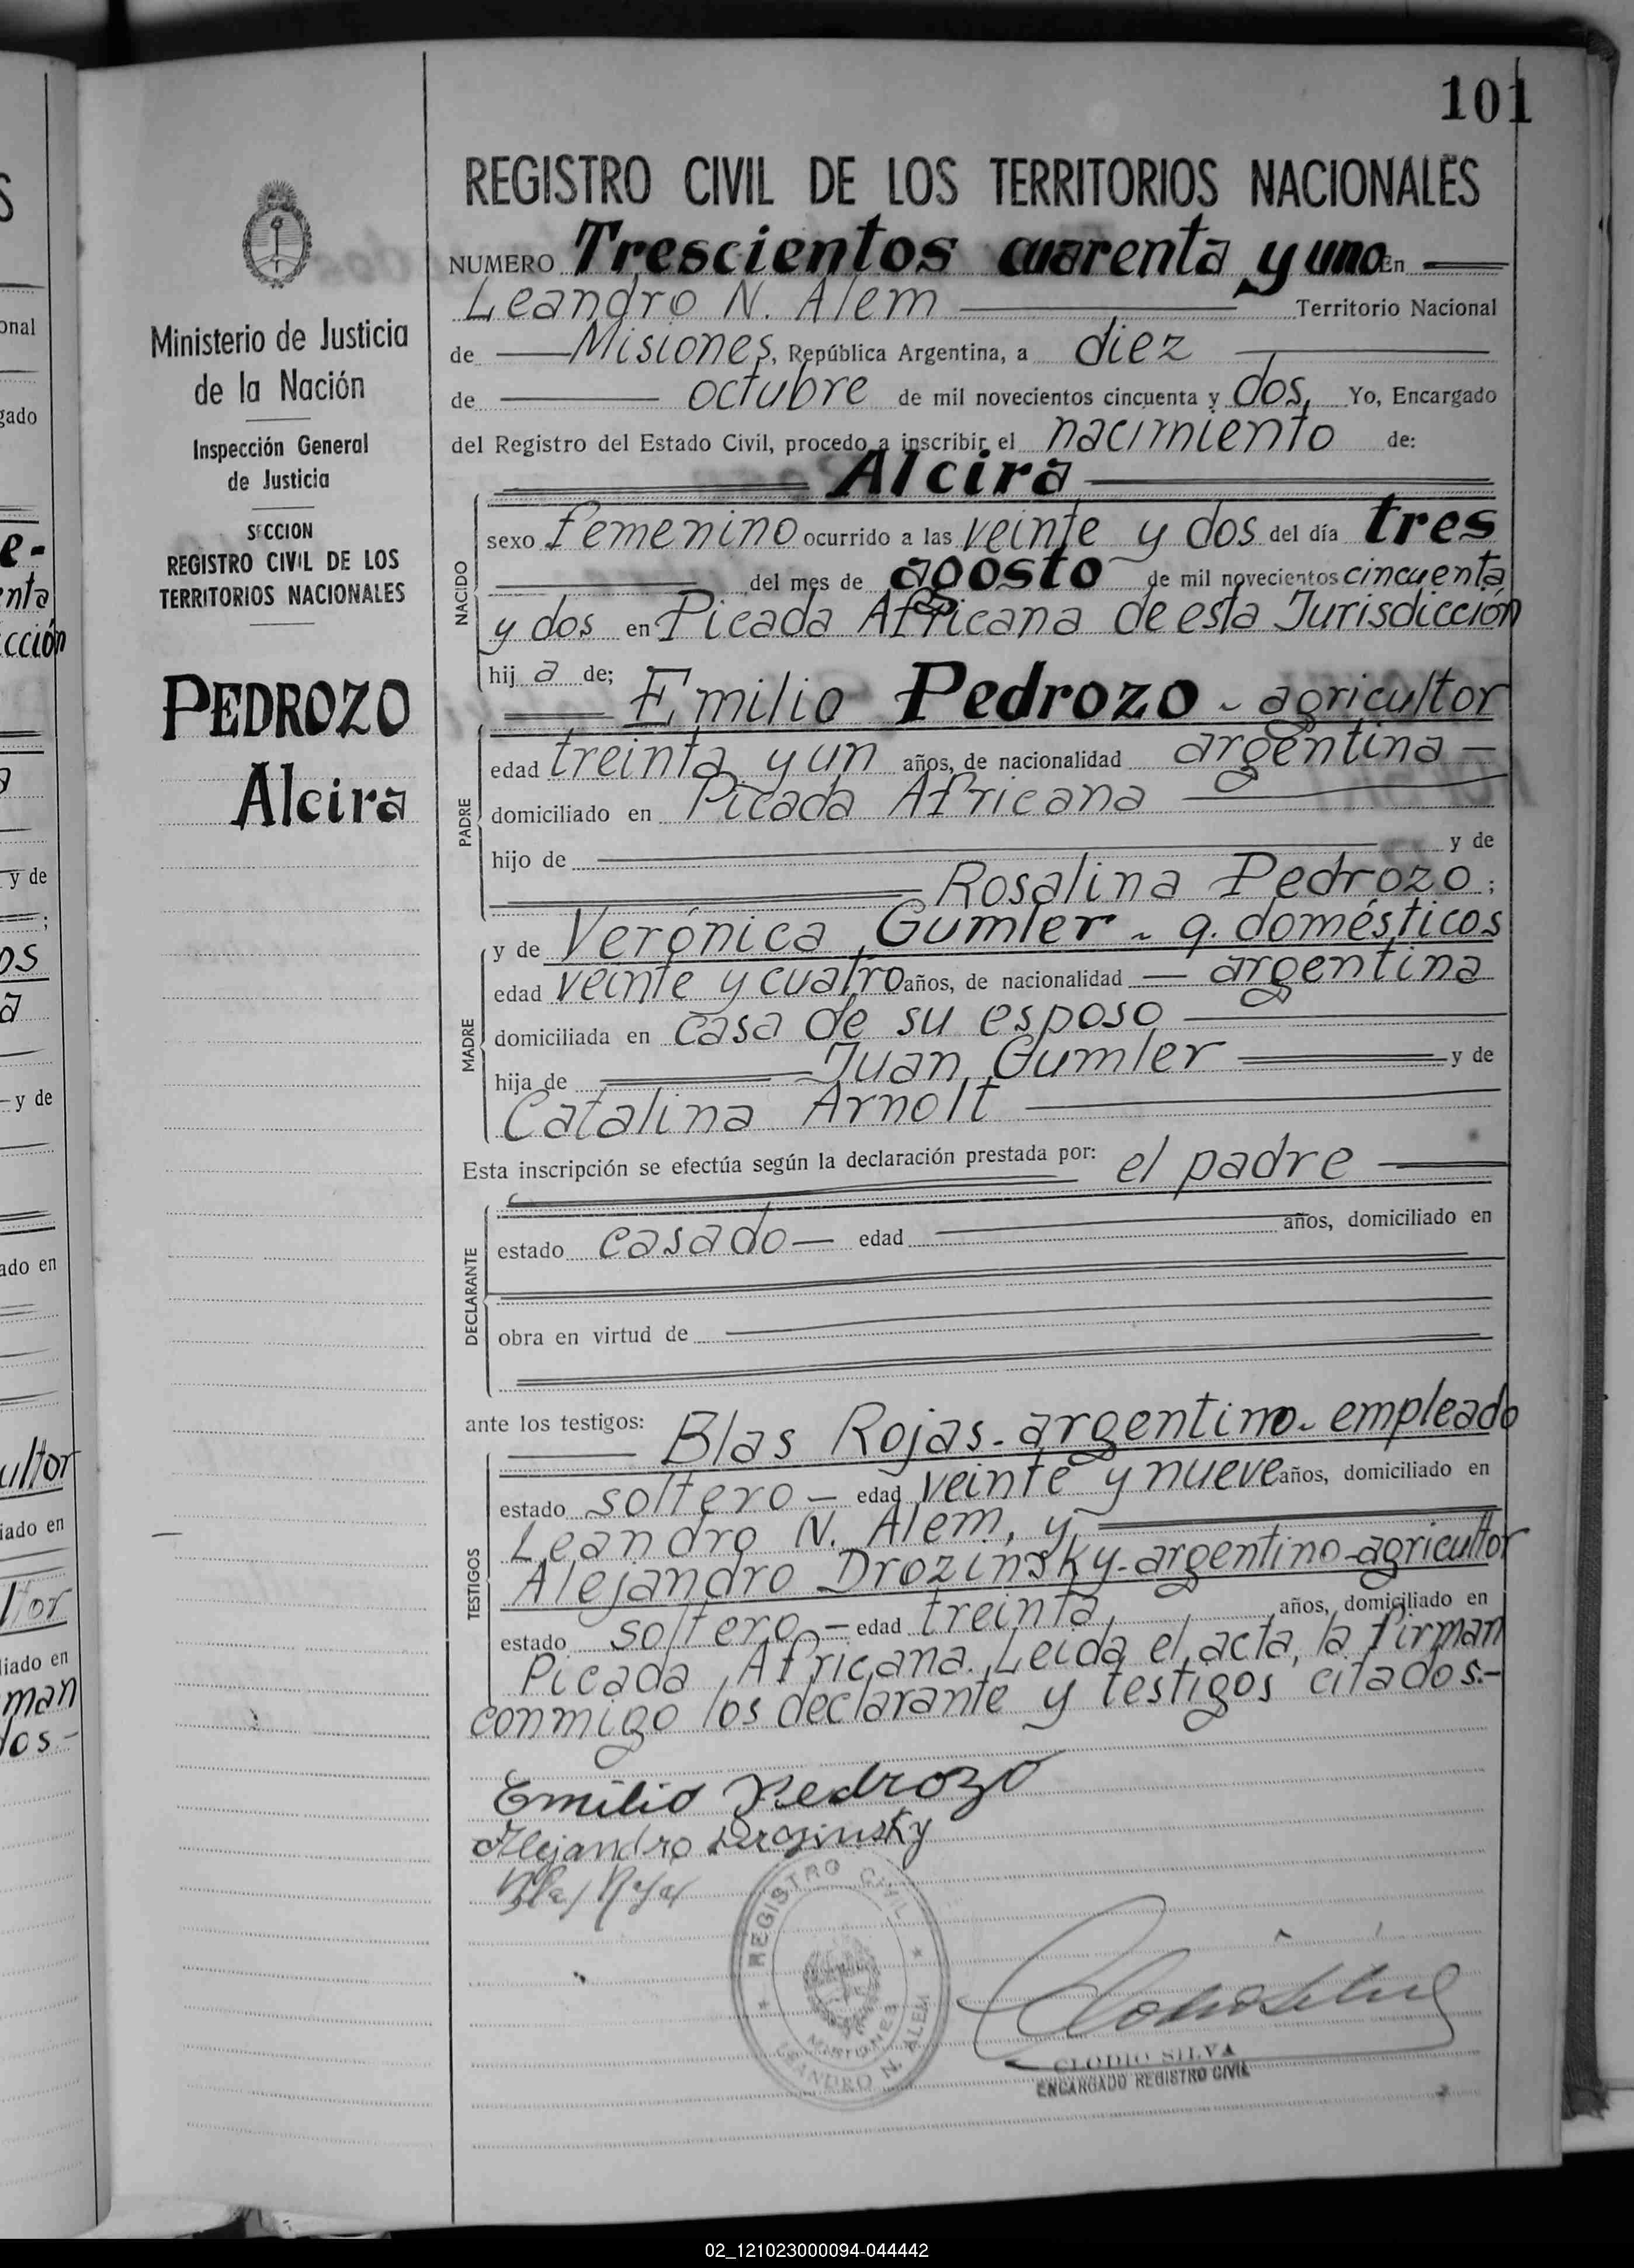 101
REGISTRO CIVIL DE LOS TERRITORIOS NACIONALES
NUMERO Trescientos cuarenta y uno En
Leandro N. Alem Territorio Nacional
de Misiones, República Argentina, a diez
de octubre de mil novecientos cincuenta y dos, Yo, Encargado
del Registro del Estado Civil, procedo a inscribir el nacimiento de:
Alcira
NACIDO
sexo femenino ocurrido a las veinte y dos del día tres
del mes de agosto de mil novecientos cincuenta
y dos en Picada Africana de esta Jurisdicción
hij a de;
Emilio Pedrozo - agricultor
PADRE
edad treinta y un años, de nacionalidad argentina
domiciliado en Picada Africana
hijo de y de
Rosalina Pedrozo;
MADRE
y de Verónica Gumler - q. domésticos
edad veinte y cuatro años, de nacionalidad argentina
domiciliada en casa de su esposo
hija de Juan Gumler y de
Catalina Arnolt
Esta inscripción se efectúa según la declaración prestada por: el padre
DECLARANTE
estado casado edad años, domiciliado en
obra en virtud de
ante los testigos:
Blas Rojas - argentino - empleado
TESTIGOS
estado soltero - edad veinte y nueve años, domiciliado en
Leandro N. Alem, y
Alejandro Drozinsky - argentino - agricultor
estado soltero - edad treinta, años, domiciliado en
Picada Africana. Leída el acta, la firman
conmigo los declarante y testigos citados.-
Emilio Pedrozo
Alejandro
Blas Rojas
REGISTRO CIVIL
MISIONES
LEANDRO N. ALEM
CLODIO SILVA
ENCARGADO REGISTRO CIVIL
Ministerio de Justicia
de la Nación
Inspección General
de Justicia
SECCION
REGISTRO CIVIL DE LOS
TERRITORIOS NACIONALES
PEDROZO
Alcira
02_121023000094-044442